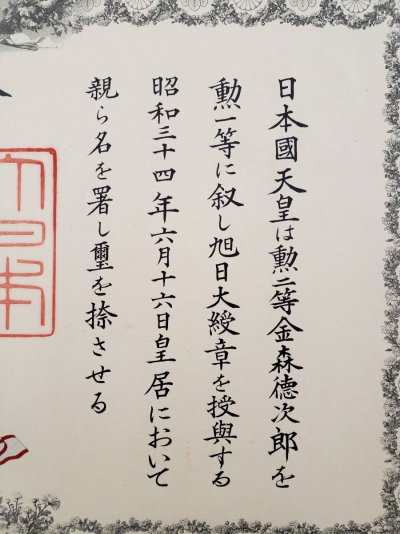 日本國天皇は勲二等金森德次郎を
勲一等に叙し旭日大綬章を授與する
昭和三十四年六月十六日皇居において
親ら名を署し璽を捺させる